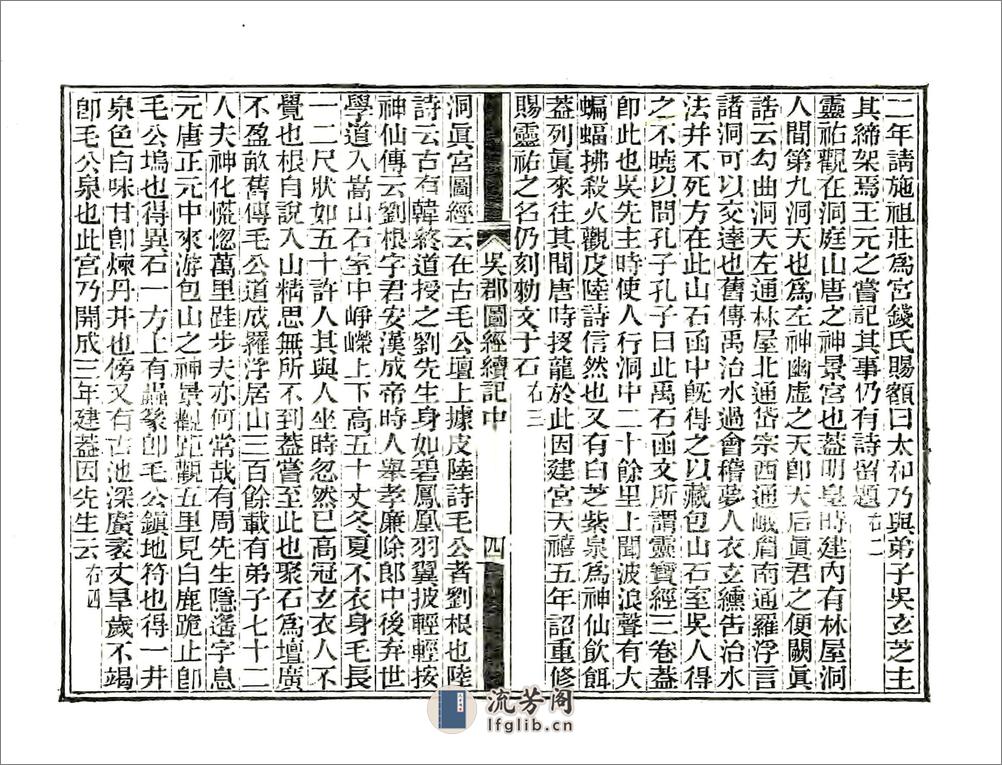 二年請施祖莊爲宮錢氏賜額曰太和乃與弟子吳玄芝主
其締架焉王元之嘗記其事仍有詩留題右二
靈祐觀在洞庭山唐之神景宮也葢明皇時建內有林屋洞
人間第九洞天也爲左神幽虛之天卽天后眞君之便闕眞
誥云勾曲洞天左通林屋北通岱宗西通峨眉南通羅浮言
諸洞可以交達也舊傳禹治水過會稽夢人衣玄纁告治水
法并不死方在此山石函中旣得之以藏包山石室吳人得
之不曉以問孔子孔子曰此禹石函文所謂靈寶經三卷葢
卽此也吳先主時使人行洞中二十餘里上聞波浪聲有大
蝙蝠拂殺火觀皮陸詩信然也又有白芝紫泉爲神仙飲餌
葢列眞來往其閒唐時投龍於此因建宮天禧五年詔重修
賜靈祐之名仍刻勑文于石右三
吳郡圖經續記中 四
洞眞宮圖經云在古毛公壇上據皮陸詩毛公者劉根也陸
詩云古有韓終道授之劉先生身如碧鳳凰羽翼披輕輕按
神仙傳云劉根字君安漢成帝時人舉孝廉除郎中後弃世
學道入嵩山石室中崢嶸上下高五十丈冬夏不衣身毛長
一二尺狀如五十許人其與人坐時忽然已高冠玄衣人不
覺也根自說入山精思無所不到葢嘗至此也聚石爲壇廣
不盈畝舊傳毛公道成羅浮居山三百餘載有弟子七十二
人夫神化慌惚萬里跬步夫亦何常哉有周先生隱遙字息
元唐正元中來游包山之神景觀距觀五里見白鹿跪止卽
毛公塢也得異石一方上有蟲篆卽毛公鎮地符也得一井
泉色白味甘卽煉丹井也傍又有古池深廣袤丈旱歲不竭
卽毛公泉也此宮乃開成三年建葢因先生云右四
流芳阁
lfglib.cn